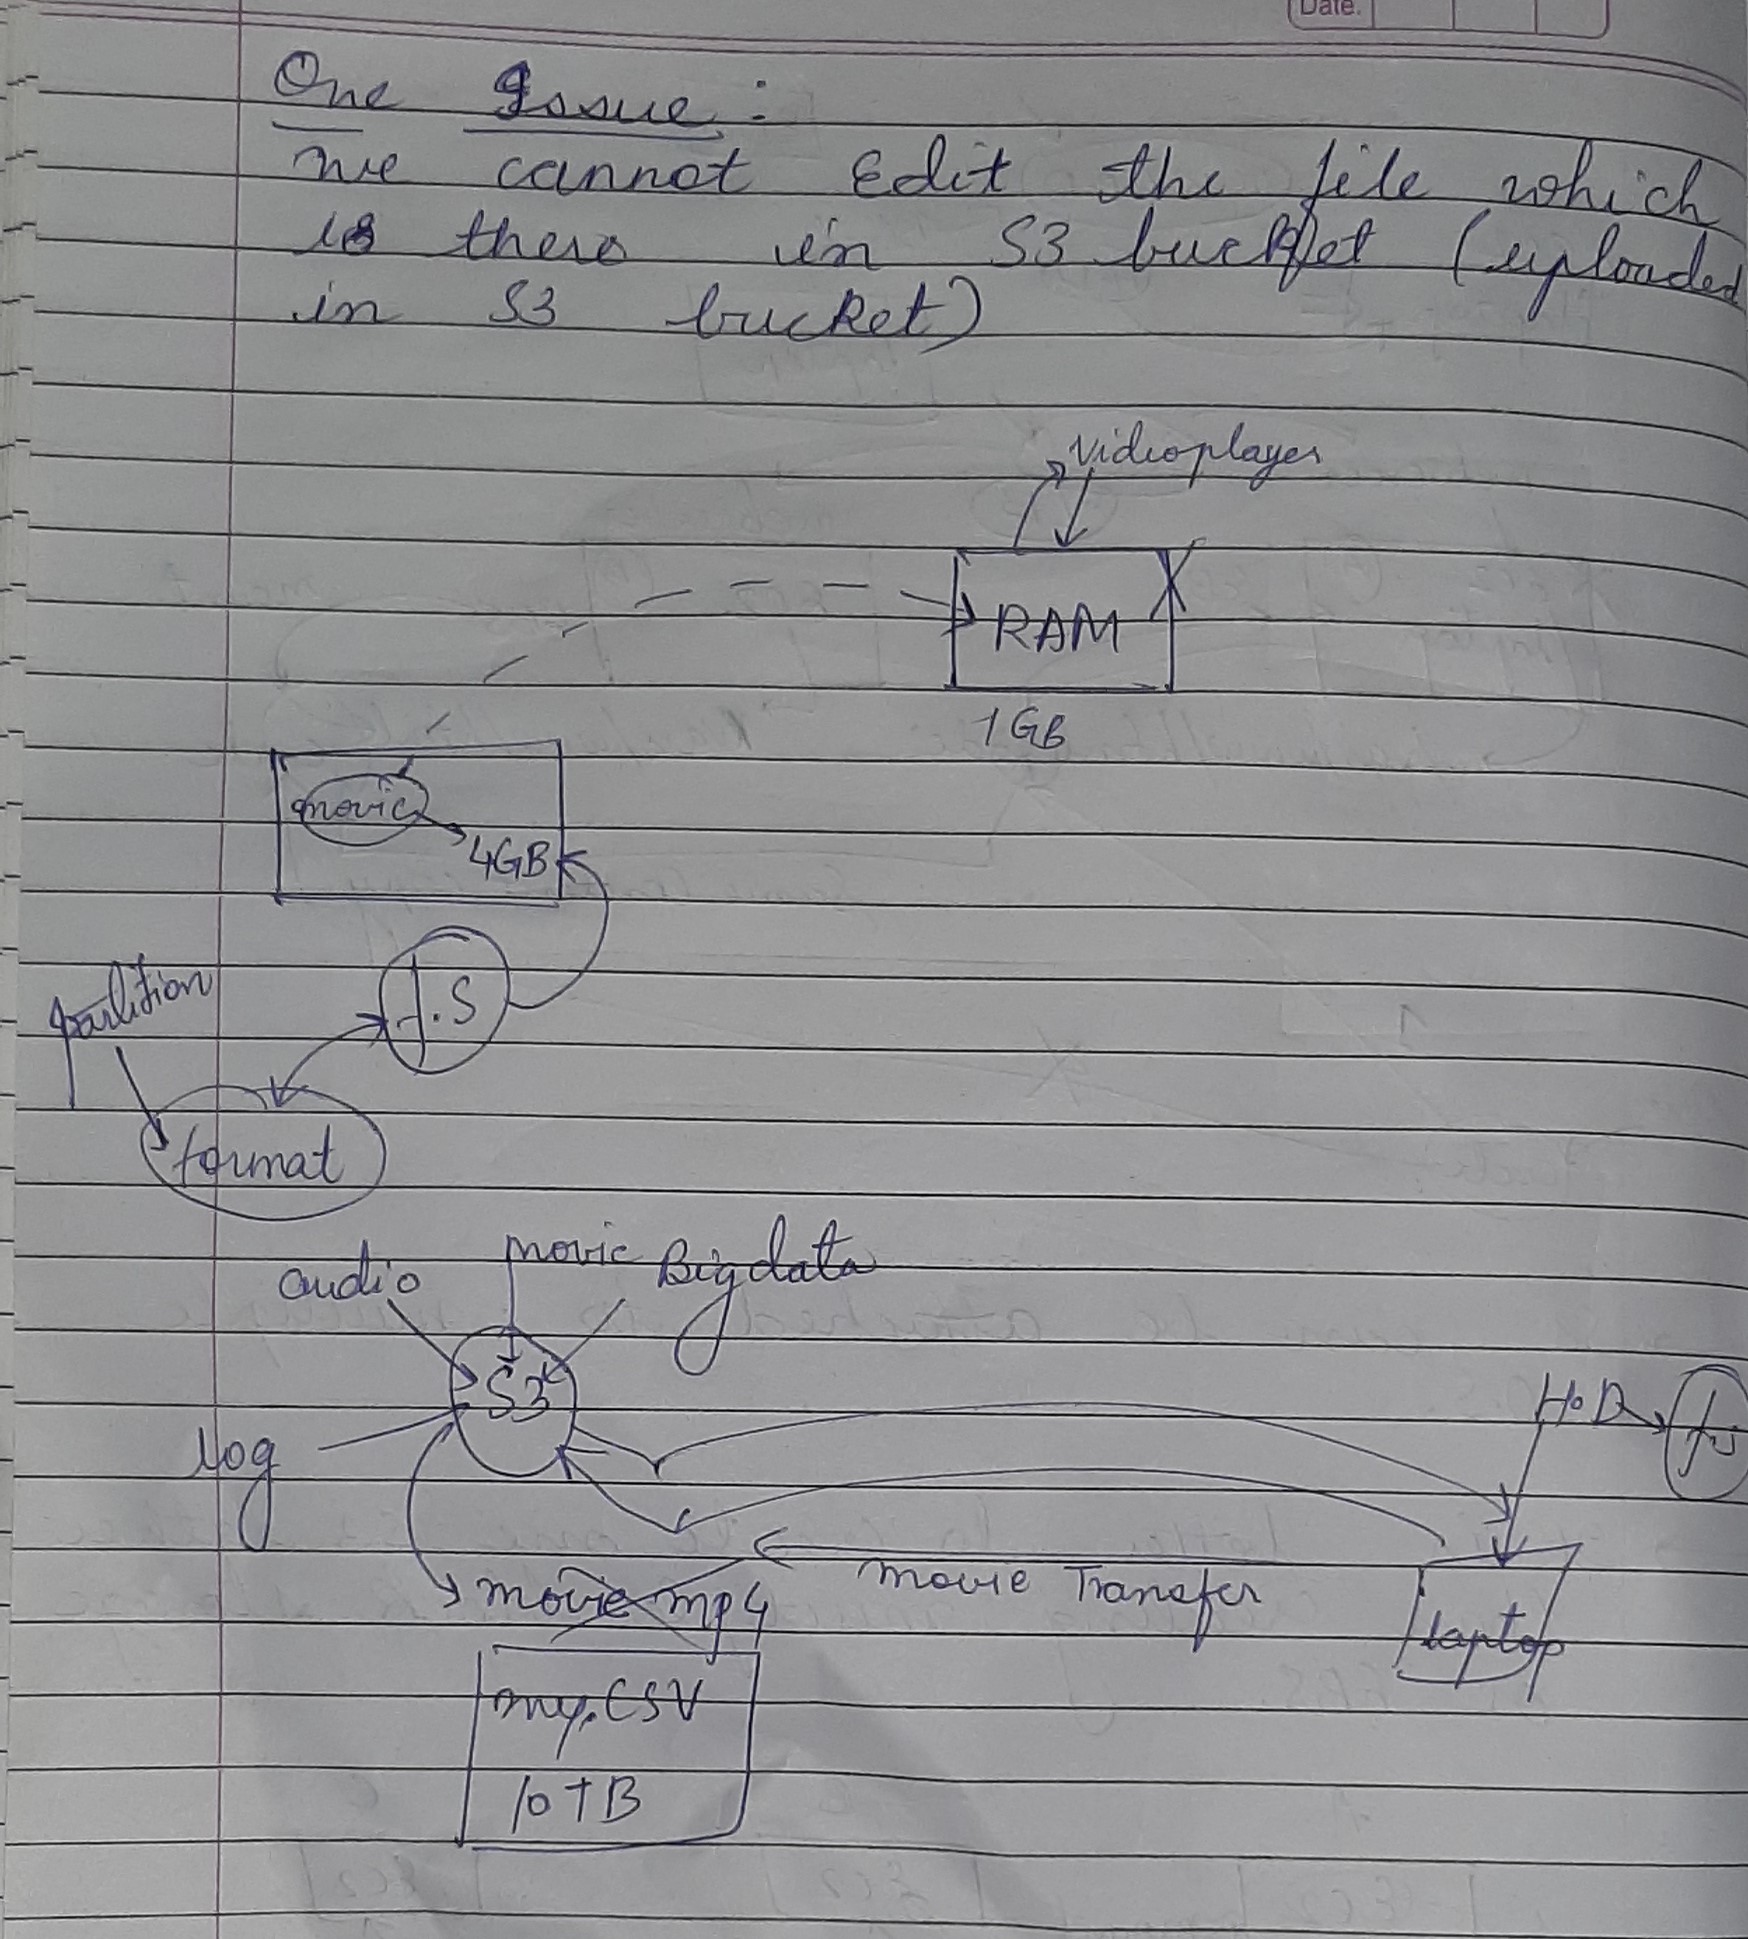 Date.
One Issue :
we cannot Edit the file which
is there in S3 bucket (uploaded
in S3 bucket)
Videoplayer
RAM
1 GB
movie
4GB
f.S
partition
format
audio movie Bigdata
S3
log
H.D fs
movie mp4
movie Transfer
laptop
my.CSV
10 TB